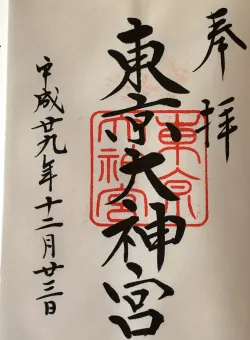 奉拝
東京大神宮
東京
大神宮
平成廿九年十二月廿三日